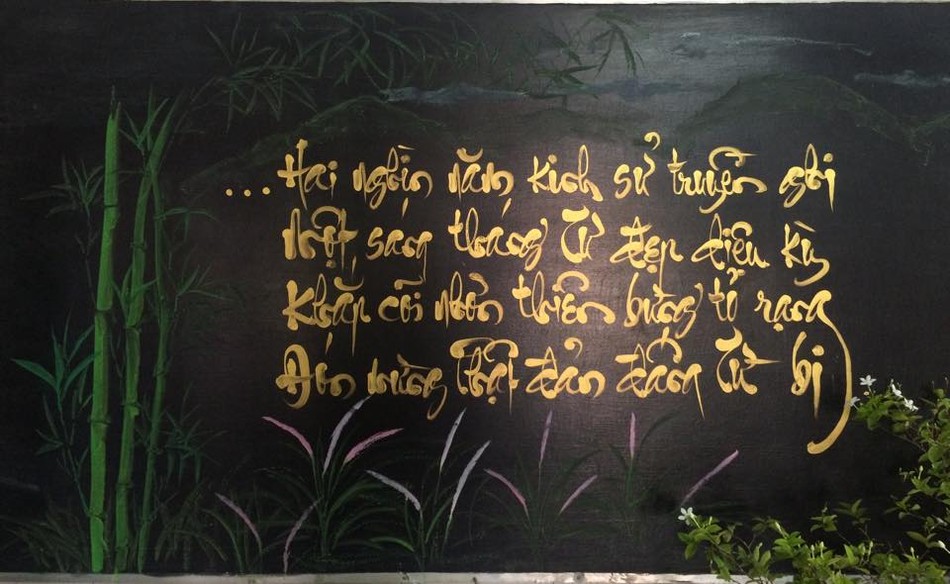 ...Hai nghìn năm kinh sử truyền ghi
Một sáng tháng Tư đẹp diệu kỳ
Khắp cõi nhân thiên bừng tỏ rạng
Đón mừng Phật đản đấng Từ bi